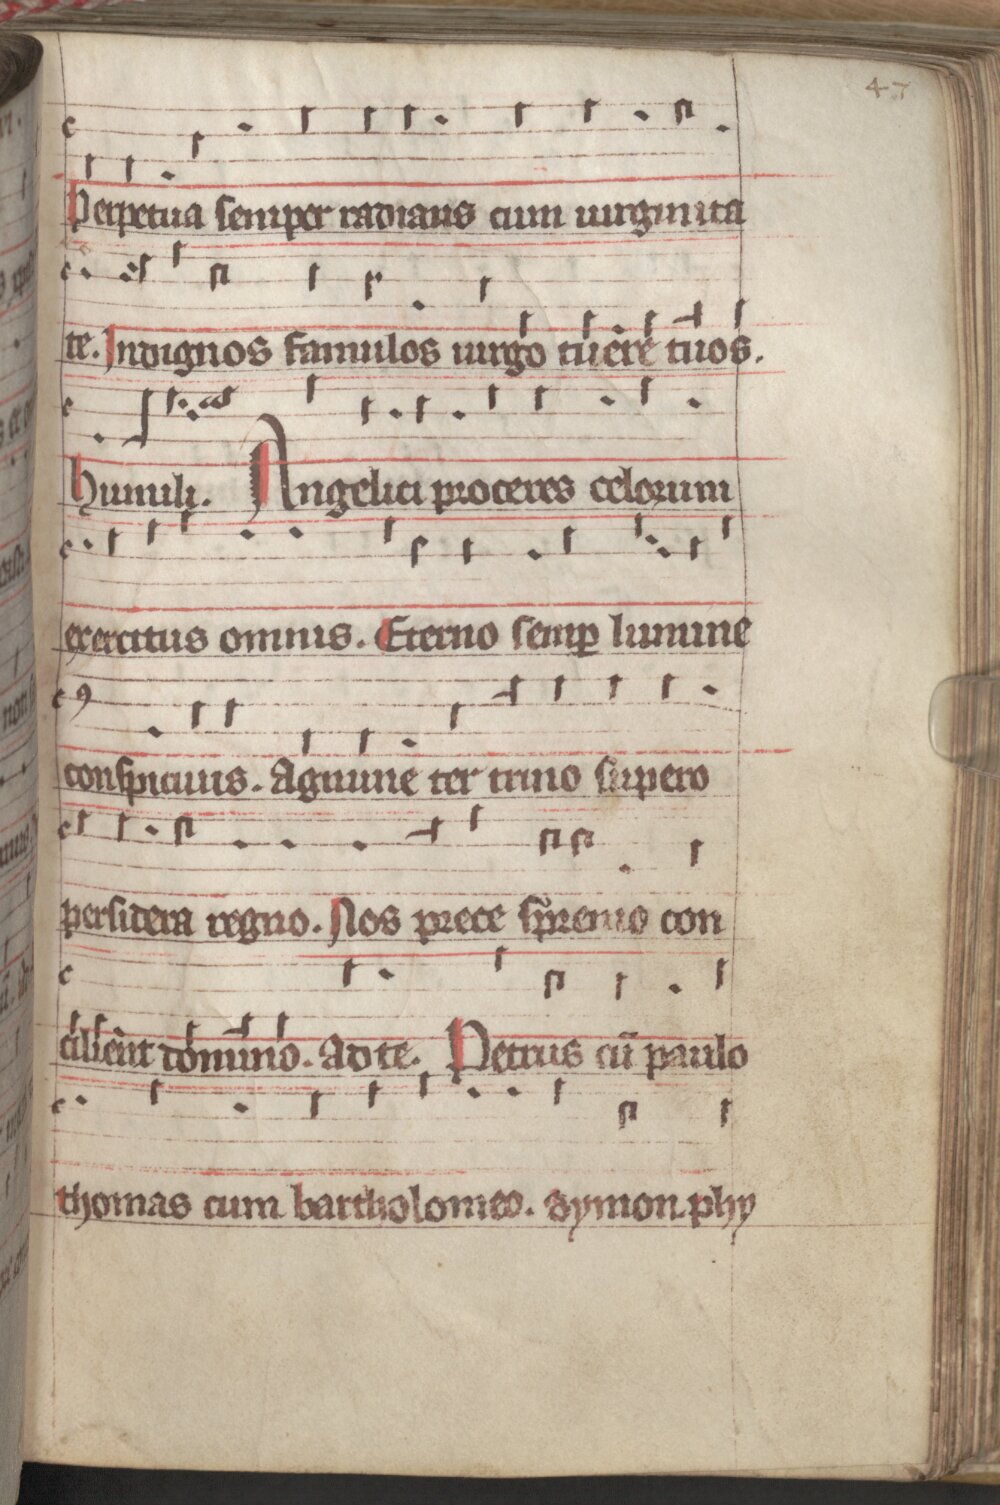 47
Perpetua semper radians cum uirginita
te. Indignos famulos uirgo tuere tuos.
humili. Angelici proceres celorum
exercitus omnis. Eterno semp lumine
conspicuus. Agmine ter trino supero
persidera regno. Nos prece sp̄remo con
cilient domino. Ad te. Petrus cū paulo
thomas cum bartholomeo. Symon. phy